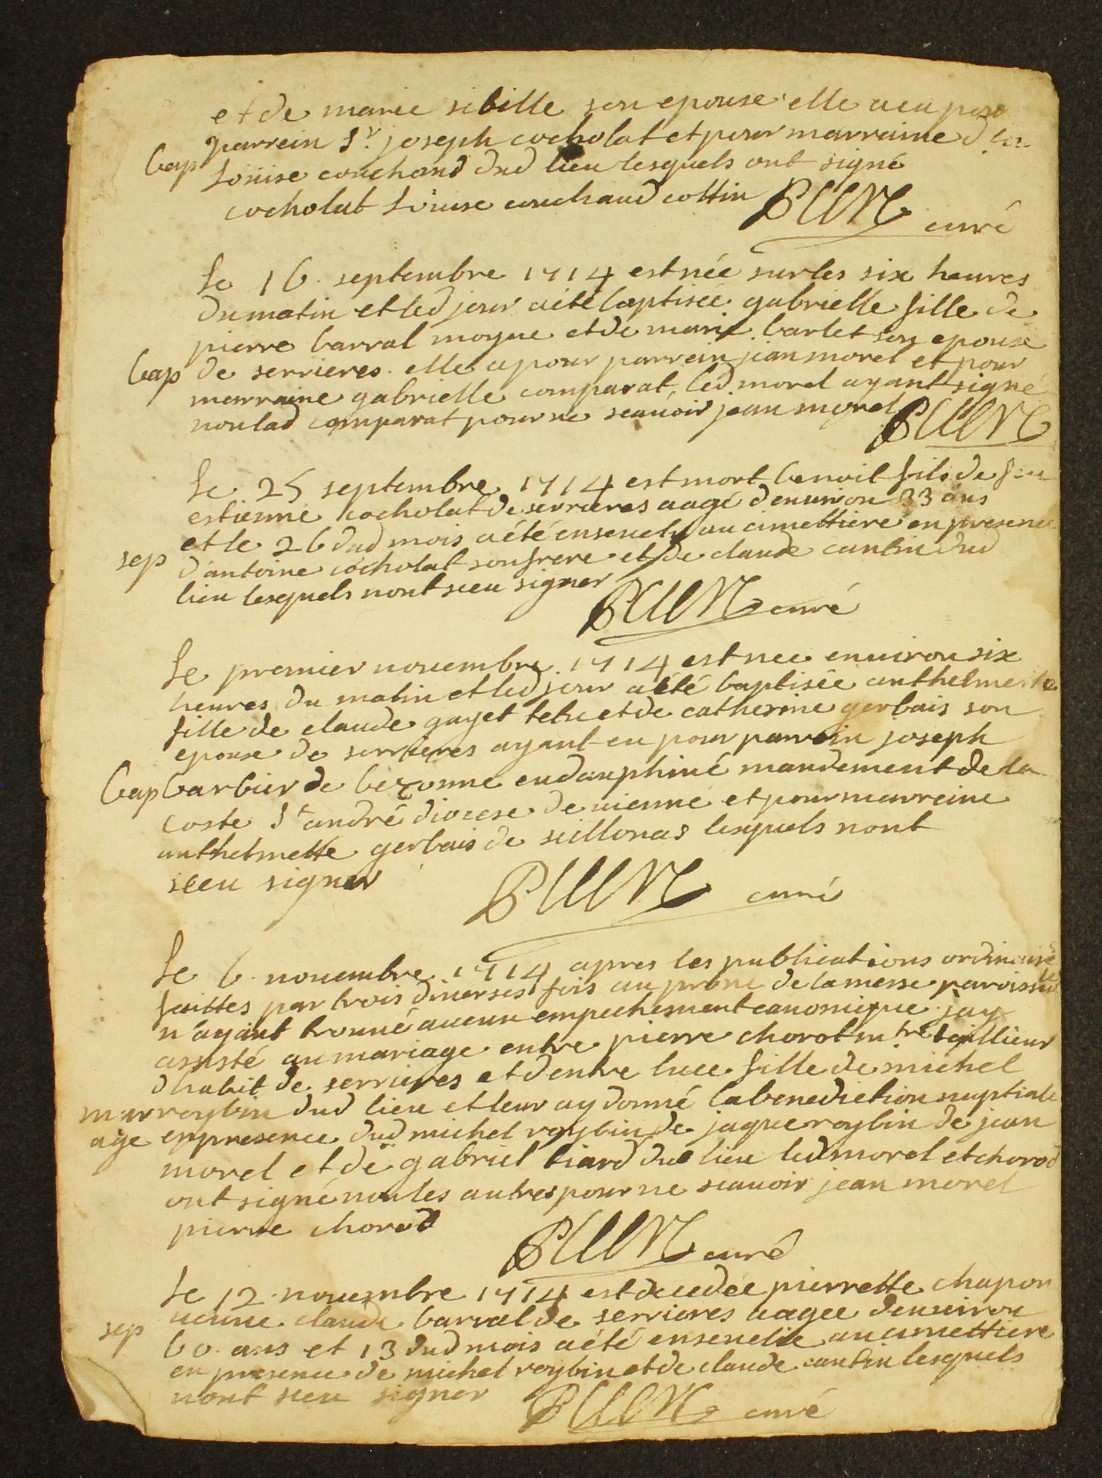 et de marie sibille son epouse elle a eu pour
parrein Sr. joseph cocholat et pour marraine
bap
Louise couchoud dud lieu lesquels ont signé
cocholat Louise couchaud cottin
curé
Le 16 septembre 1714 est née sur les six heures
du matin et led jour a eté baptisée gabrielle fille de
pierre barral moyne et de marie barlet son epouse
bap de serrieres elle a pour parrein jean morel et pour
marraine gabrielle comparat led morel ayant signé
non lad comparat pour ne scauoir jean morel
Le 25 septembre 1714 est mort benoit fils de feu
estienne cocholat de serrieres aagé denuiron 33 ans
et le 26 dud mois a été enseueli au cimettiere en presence
sep d'antoine cocholat son frere et de claude cantin dud
lieu lesquels nont sceu signer
curé
Le premier nouembre 1714 est nee enuiron six
heures du matin et led jour a été baptisée anthelmette
fille de claude gayet et de catherine gerbais son
epouse de serrieres ayant eu pour parrein joseph
bap barbier de en dauphiné mandement de la
coste St andré diocese de uienne et pour marreine
anthelmette gerbais de seillonas lesquels nont
sceu signer
curé
Le 6 nouembre 1714 apres les publications ordinaires
faittes par trois diuerses fois au prone de la messe paroissial
n'ayant trouué aucun empechement canonique jay
assisté au mariage entre pierre chorot mtre taillieur
dhabit de serrieres et dentre luce fille de michel
mar roybin dud lieu et leur ay donné la benediction nuptiale
age en presence dud michel roybin de jaque roybin de jean
morel et de gabriel tiard dud lieu led morel et chorod
ont signé non les autres pour ne scauoir jean morel
pierre chorod
curé
Le 12 nouembre 1714 est decedée pierrette chapon
ueuue claude barral de serrieres aagee denuiron
sep
60 ans et 13 dud mois a été enseuelie au cimettiere
en presence de michel roybin et de claude cantin lesquels
nont sceu signer
curé